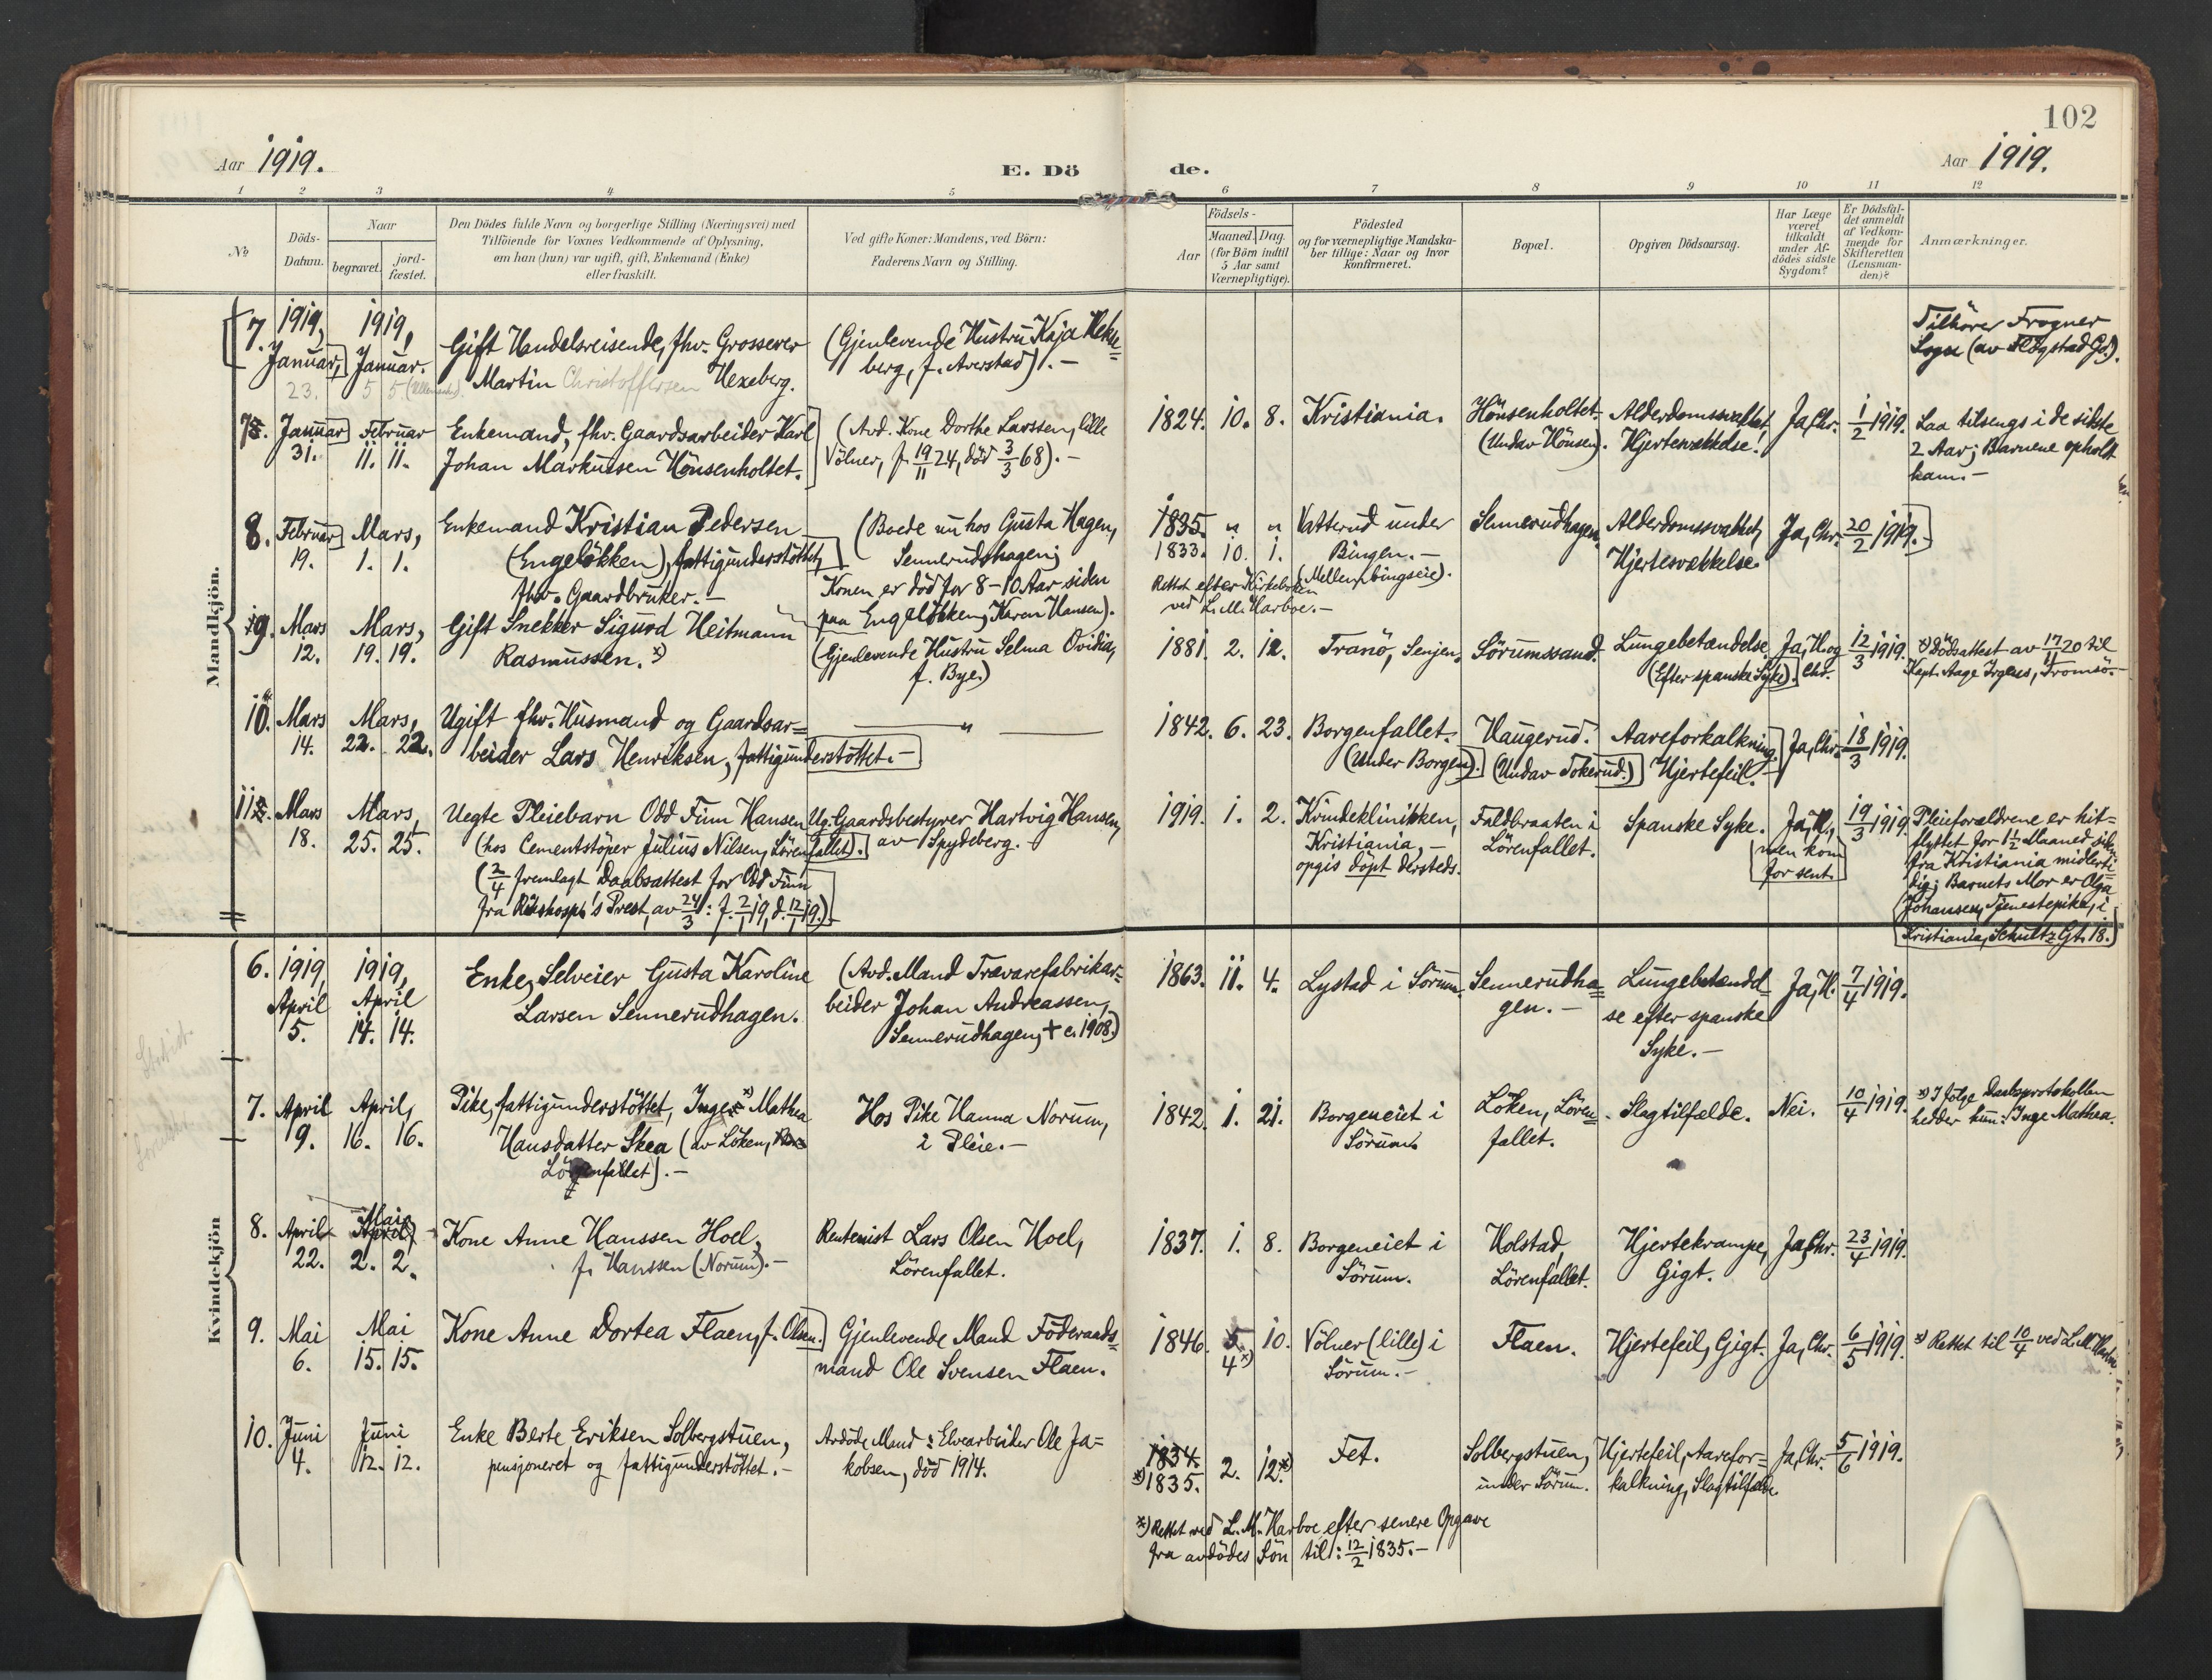 102
Aar 1919.
E. Dö
de.
Aar 1919.
1 2 3 4 5 6 7 8 9 10 11 12
No
Döds-
Datum.
Naar
begravet.
jord-
fæstet.
Den Dödes fulde Navn og borgerlige Stilling (Næringsvei) med
Tilföiende for Voxnes Vedkommende af Oplysning,
om han (hun) var ugift, gift, Enkemand (Enke)
eller fraskilt.
Ved gifte Koner: Mandens, ved Börn:
Faderens Navn og Stilling.
Födsels-
Aar
Maaned.
Dag.
(for Börn indtil
5 Aar samt
Værnepligtige).
Födested
og for værnepligtige Mandska-
ber tillige: Naar og hvor
konfirmeret.
Bopæl.
Opgiven Dödsaarsag.
Har Læge
været
tilkaldt
under Af-
dödes sidste
Sygdom?
Er Dödsfal-
det anmeldt
af Vedkom-
mende for
Skifteretten
(Lensman-
den)?
Anmærkninger.
Mandkjön.
7. 1919,
Januar,
23.
1919,
Januar.
5 5
Gift Handelsreisende, fhv. Grosserer
Martin Christoffersen Hexeberg.
(Gjenlevende Hustru Kaja Hekse=
berg, f. Averstad). -
Tilhörer Frogner
Sogn (av Flögstad Gd.).
Januar
31.
Februar
11. 11.
Enkemand, fhv. Gaardsarbeider Karl
Johan Markussen Hönsenholtet.
(Avd. Kone Dorthe Larssen, lille
Völner, f. 19/11 24, död 3/3 68). -
1824. 10. 8.
Kristiania.
Hönsenholtet
(Under Hönsen).
Alderdomssvakhet,
Hjertesvækkelse!
Ja, Chr.
1/2 1919.
Laa tilsengs i de sidste
2 Aar; Barnene opholdt
ham. -
8. Februar
19.
Mars,
1. 1.
Enkemand Kristian Pedersen
(Engelökken), fattigunderstöttet,
fhv. Gaardbruker. -
(Boede nu hos Gusta Hagen,
Sennerudshagen;
Konen er död for 8-10 Aar siden
paa Engelökken; Karen Hansen).
1835. " "
1833. 10. 1.
Rettet efter Kirkeboken
ved L. M. Harboe. -
Vatterud under
Bingen. -
(Mellem bingseie).
Sennerudhagen.
Alderdomssvakhet,
Hjertesvækkelse.
Ja, Chr.
20/2 1919.
9. Mars
12.
Mars,
19. 19.
Gift Snekker Sigurd Heitmann
Rasmussen. *)
(Gjenlevende Hustru Selma Ovidia,
f. Bye.)
1881. 2. 12.
Tranö, Senjen.
Sörumssand.
Lungebetændelse.
(Efter spanske Syke).
Ja, H. og
Chr.
12/3 1919.
*) Dödsattest av 17/11 20 til
Kapt. Aage Irgens, Tromsö.
10. Mars
14.
Mars,
22. 22.
Ugift fhv. Husmand og Gaardsar=
beider Lars Henriksen, fattigunderstöttet. -
"
1842. 6. 23.
Borgenfallet.
(Under Borgen).
Haugerud.
(Under Tokerud.)
Aareforkalkning
Hjertefeil.
Ja, Chr.
18/3 1919.
11. Mars
18.
Mars,
25. 25.
Uegte Pleiebarn Odd Finn Hansen
(hos Cementstöper Julius Nilsen, Lörenfallet).
(2/4 fremlagt Daabsattest for Odd Finn
fra Rikshospt's Prest, av 24/3: f. 2/1 19, d. 12/1 19.)
Ug. Gaardsbestyrer Hartvig Hansen,
av Spydeberg.
1919. 1. 2.
Kvindeklinikken,
Kristiania, -
opgis döpt dersteds.
Faldbraaten i
Lörenfallet.
Spanske Syke.
Ja, H.,
men kom
for sent.
19/3 1919.
Pleieforældrene er hit=
flyttet for 1½ Maaned siden
fra Kristiania midlerti=
dig; Barnets Mor er Olga
Johansen, Tjenestepike, i
Kristiania, Schultz Gt. 18.
Kvindekjön
6. 1919,
April
5.
1919,
April
14. 14.
Enke, Selveier Gusta Karoline
Larsen Sennerudhagen.
(Avd. Mand Trævarefabrikar=
beider Johan Andreassen,
Sennerudhagen, + c. 1908.)
1863. 11. 4.
Lystad i Sörum.
Sennerudha=
gen. -
Lungebetændel=
se efter spanske
Syke. -
Ja, H.
7/4 1919.
7. April
9.
April,
16. 16.
Pike, fattigunderstöttet, Inger *) Mathea
Hansdatter Skea (av Löken,
Lörenfallet). -
Hos Pike Hanna Norum,
2 Pleie. -
1842. 1. 21.
Borgeneiet i
Sörum.
Löken, Lören=
fallet.
Slagtilfælde.
Nei.
10/4 1919.
*) I fölge Daabsprotokollen
hedder hun: Inge Mathea.
8. April
22.
April,
Mai
2. 2.
Kone Anne Hanssen Hoel,
f. Hanssen (Norum). -
Rentenist Lars Olsen Hoel,
Lörenfallet.
1837. 1. 8.
Borgeneiet i
Sörum.
Holstad,
Lörenfallet.
Hjertekrampe,
Gigt.
Ja, Chr.
23/4 1919.
9. Mai
6.
Mai
15. 15.
Kone Anne Dortea Flaen, f. Olsen.
Gjenlevende Mand Föderaads=
mand Ole Svensen Flaen.
1846. 5. 10.
4 *)
Völner (lille) i
Sörum. -
Flaen.
Hjertefeil, Gigt.
Ja, Chr.
6/5 1919.
*) Rettet til 10/4 ved L. M. Harboe
10. Juni
4.
Juni
12. 12.
Enke Berte Eriksen Solbergstuen,
pensjoneret og fattigunderstöttet. -
Avdöde Mand: Elvearbeider Ole Ja=
kobsen, död 1914.
1834.
*) 1835. 2. 12. *)
Fet.
Solbergstuen,
under Sörum.
Hjertefeil, Aarefor=
kalkning, Slagtilfælde.
Ja, Chr.
5/6 1919.
*) Rettet ved L. M. Harboe efter senere Opgave
fra avdödes Sön til: 12/2 1835. -